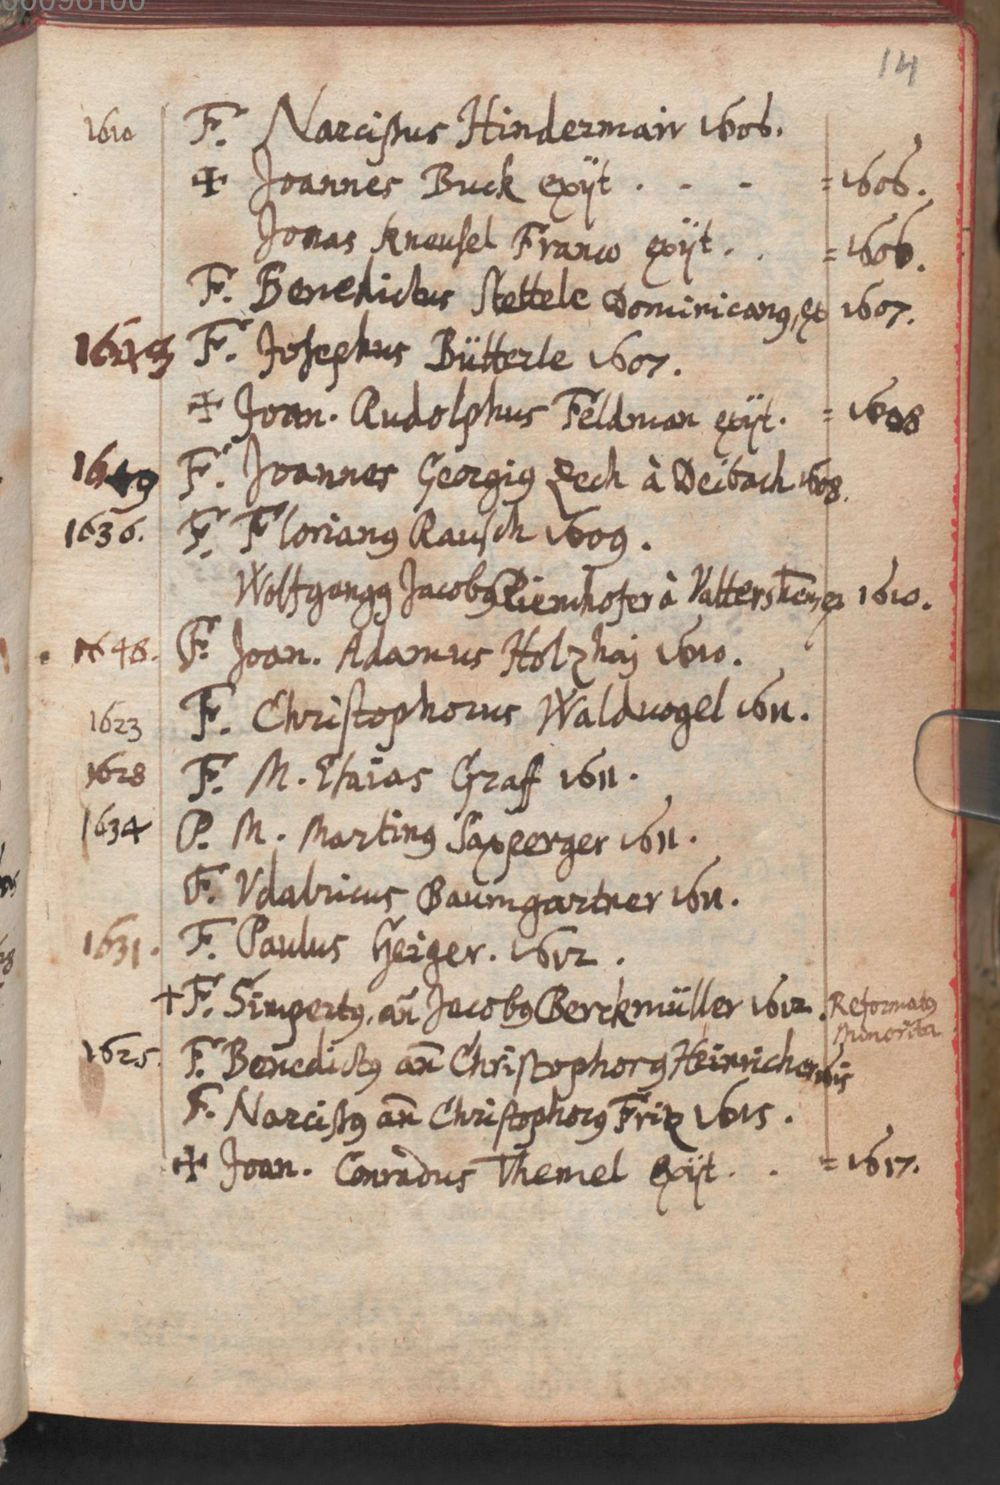 14
1610 F. Narcissus Hindermair 1606.
✠ Joannes Buck exijt . - - = 1606.
Jonas Kneusel Franco exijt . . = 1606.
F. Benedictus Stettele Dominicanus, ex 1607.
F. Josephus Bütterle 1607.
✠ Joan. Rudolphus Feldman exijt. = 1608
F. Joannes Georgius Zech à Deibach 1608.
1636. F. Florianus Rausch 1609.
Wolfgangus Jacobus à 1610.
1648. F. Joan. Adamus Holzhaj 1610.
1623 F. Christophorus Waldvogel 1611.
1628 F. M. Esaias Graff 1611.
1634 P. M. Martinus Saxperger 1611.
F. Vdalricus Baumgartner 1611.
1631. F. Paulus Geiger. 1612.
+ F. Simpertus, añ Jacobus Berckmüller 1612. Reformatus
Minorita
1625. F. Benedictus añ Christophorus
F. Narcissus añ Christophorus Friz 1615.
✠ Joan. Conradus Themel exijt . . = 1617.